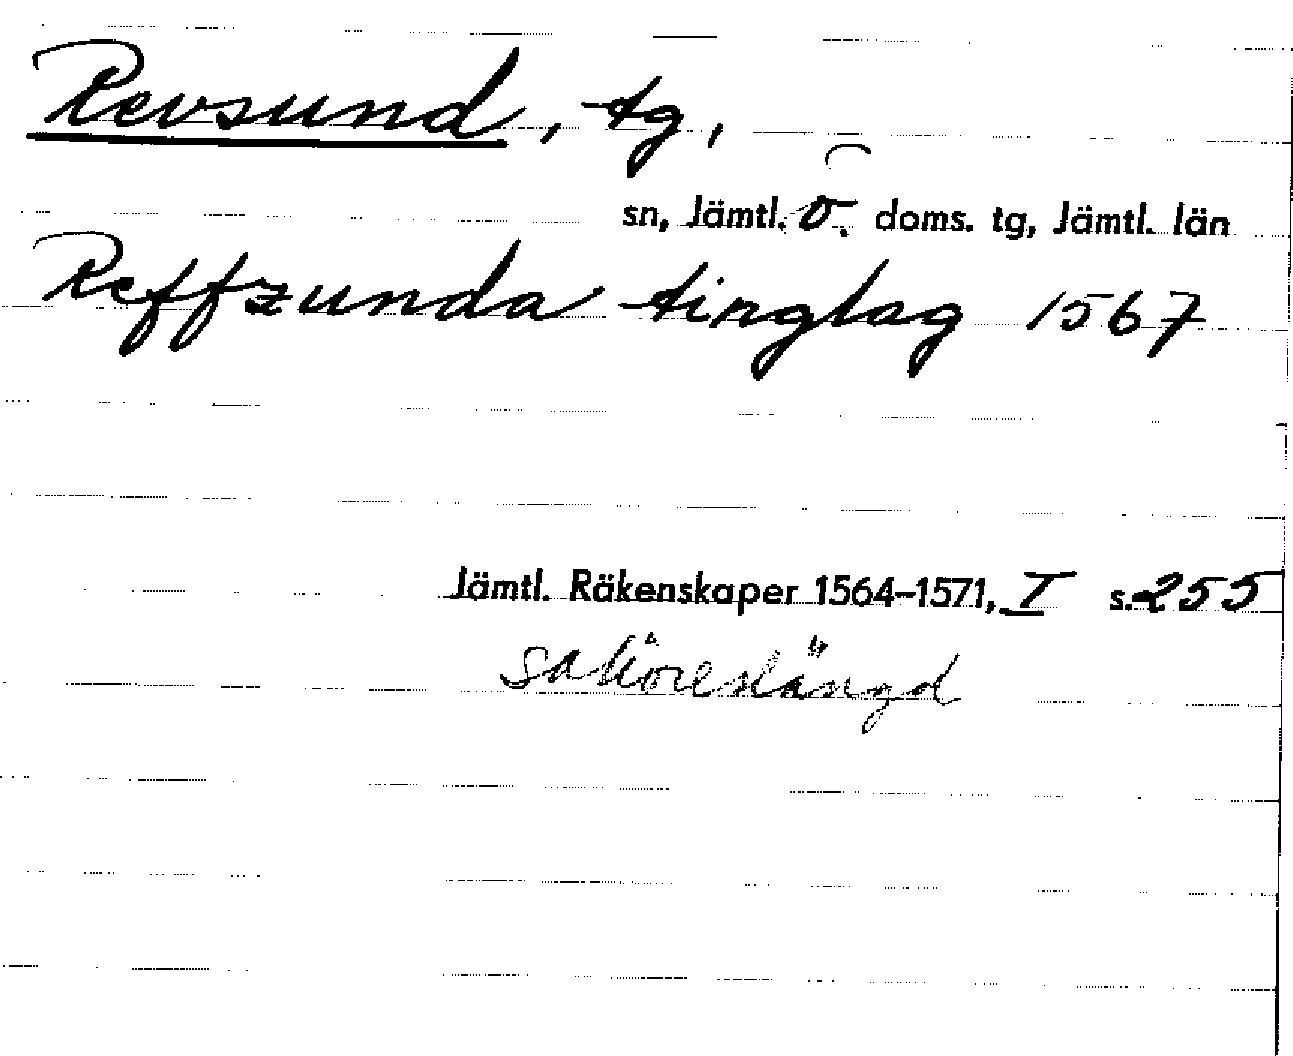 Revsund, tg,
sn, Jämtl. ö. doms. tg, Jämtl. län
Reffzunda tinglag 1567
Jämtl. Räkenskaper 1564–1571, I s. 255
saköreslängd